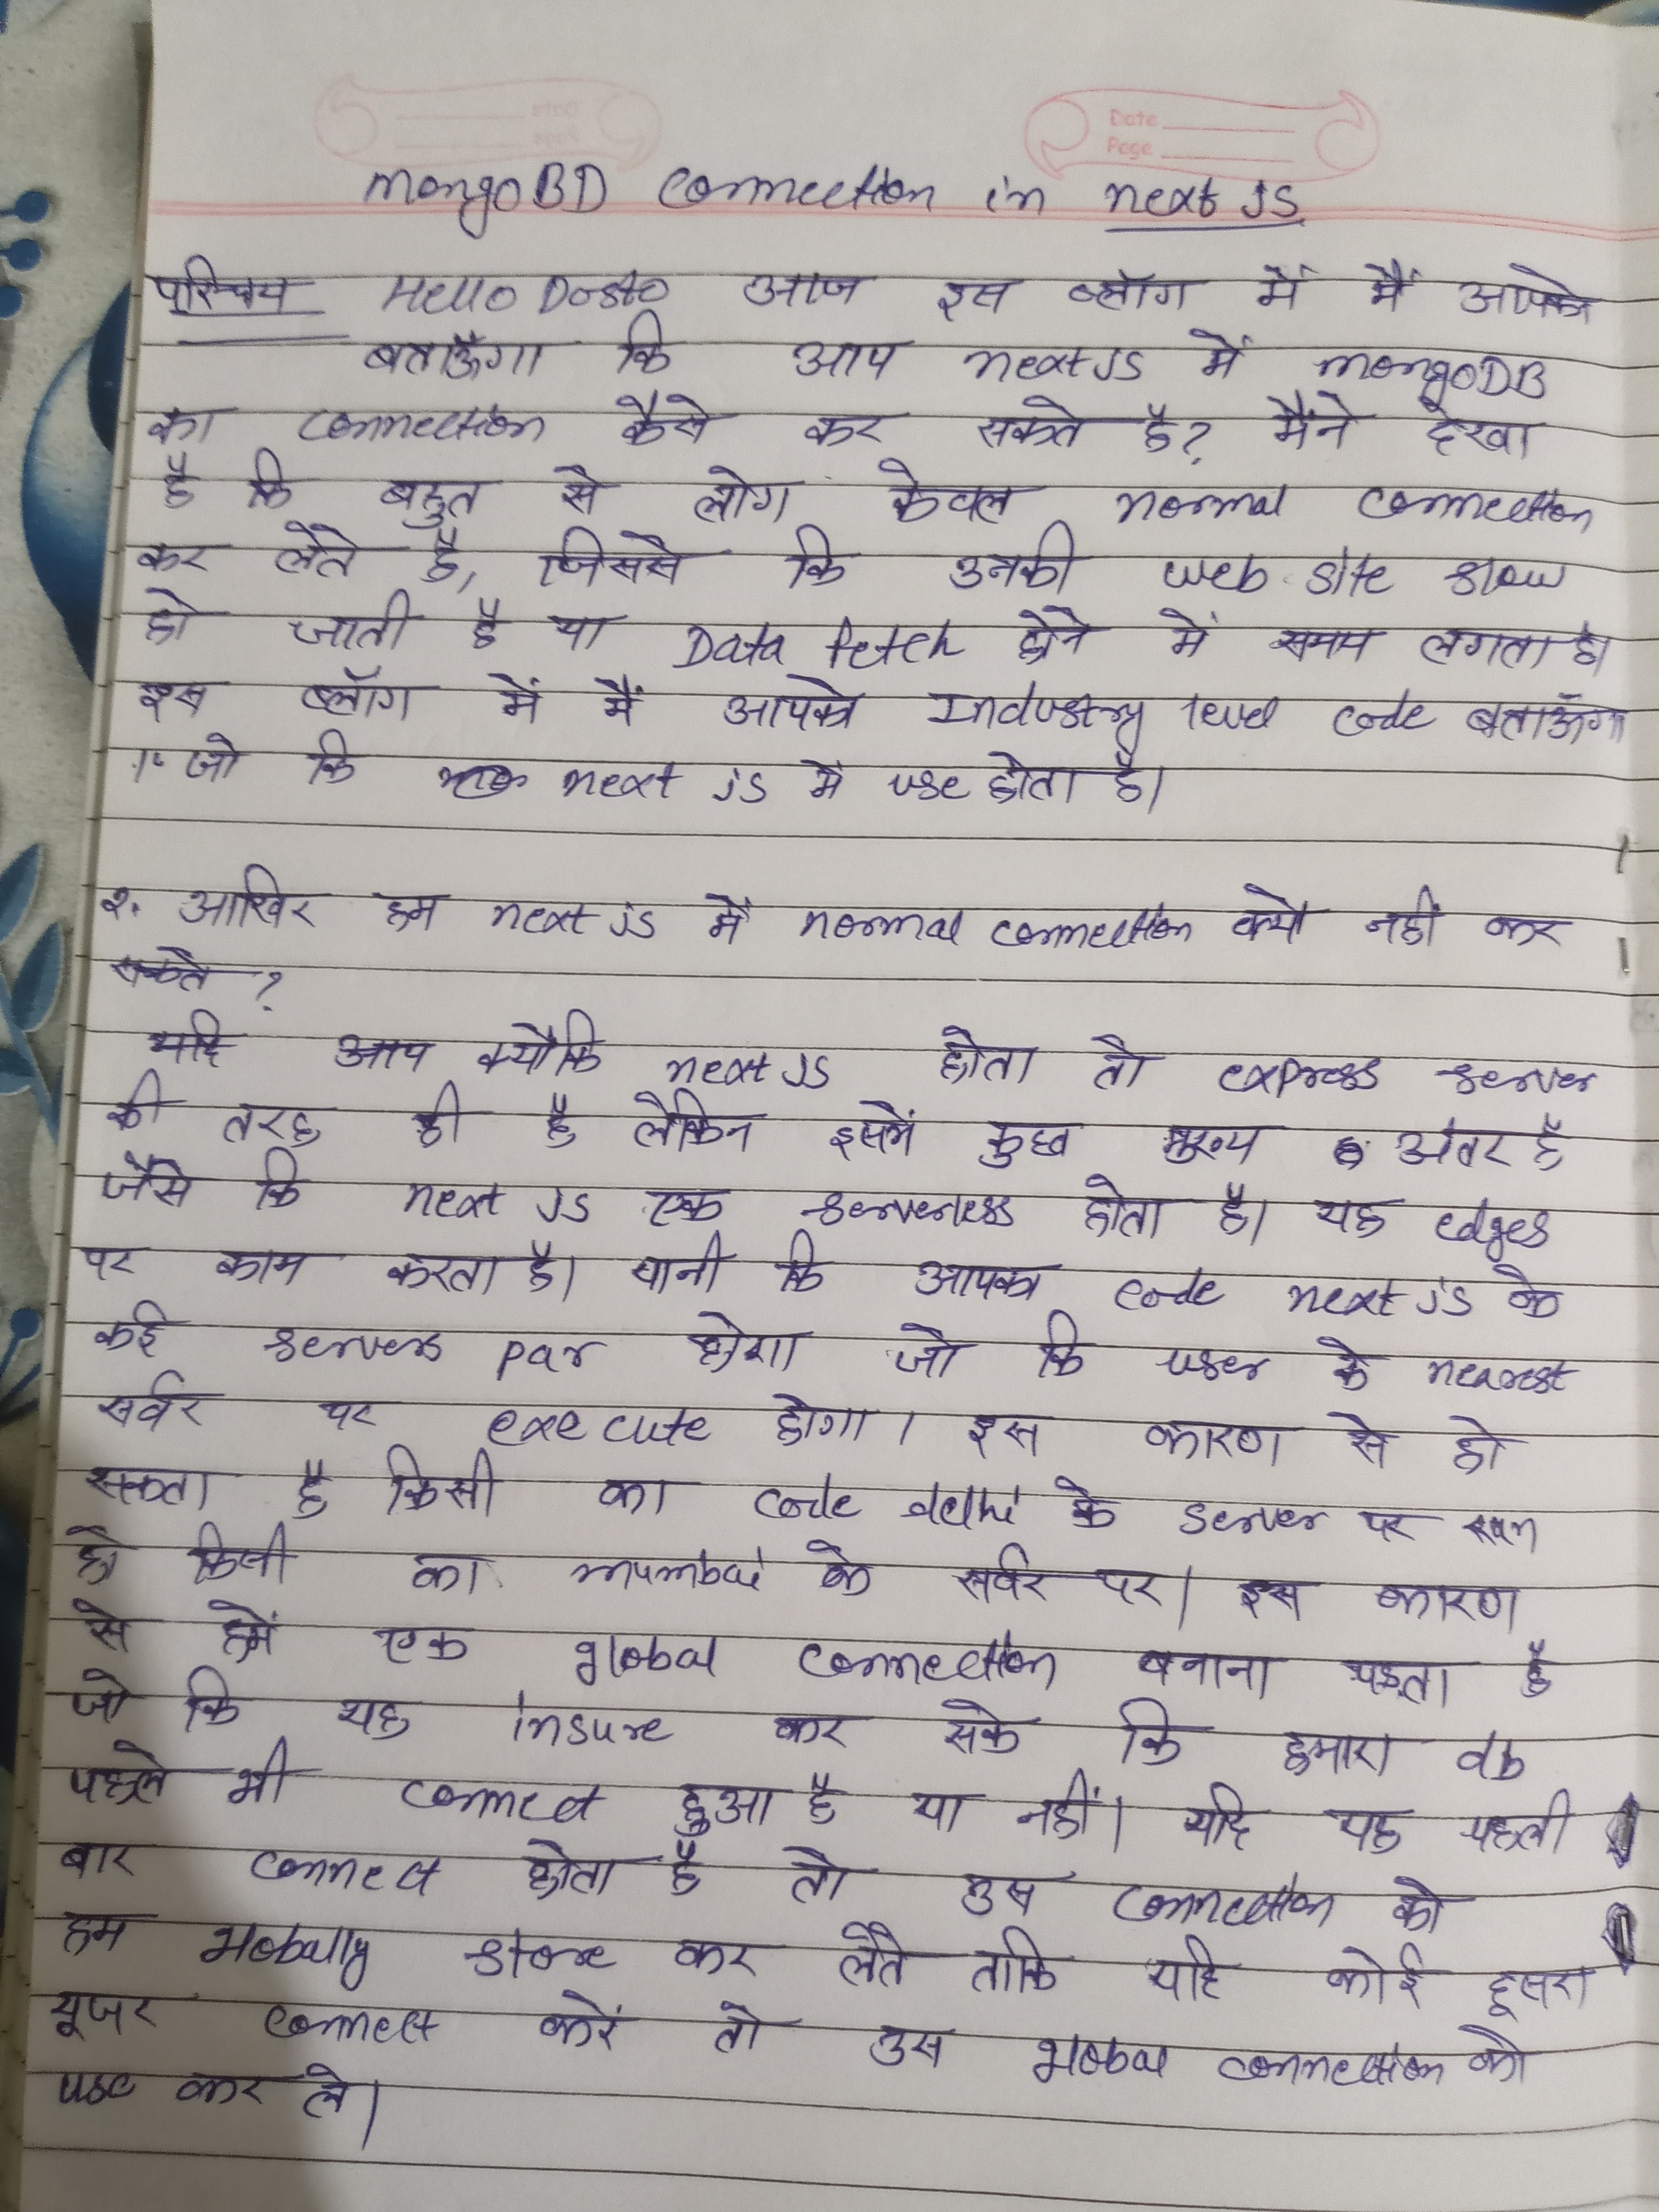 Date
Page
MongoBD Connection in next JS
परिचय Hello Dosto आज इस ब्लॉग में मैं आपको
बताऊँगा कि आप next JS में mongoDB
का connection कैसे कर सकते है? मैंने देखा
है कि बहुत से लोग केवल normal connection
कर लेते है, जिससे कि उनकी web site slow
हो जाती है या Data fetch होने में समय लगता है।
इस ब्लॉग में मैं आपको Industry level code बताऊँगा
जो कि next js में use होता है।
२. आखिर हम next js में normal connection क्यो नहीं कर
सकते ?
यदि आप क्योकि next JS होता तो express server
की तरह ही है लेकिन इसमें कुछ मुख्य अंतर है
जैसे कि next JS एक serverless होता है। यह edges
पर काम करता है। यानी कि आपका code next js के
कई servers par होगा जो कि user के nearest
सर्वर पर execute होगा। इस कारण से हो
सकता है किसी का code delhi के server पर run
हो किसी का mumbai के सर्वर पर। इस कारण
से हमें एक global connection बनाना पड़ता है
जो कि यह insure कर सके कि हमारा db
पहले भी connect हुआ है या नहीं। यदि यह पहली
बार connect होता है तो उस connection को
हम globally store कर लेते ताकि यदि कोई दूसरा
यूजर connect करें तो उस global connection को
use कर ले।